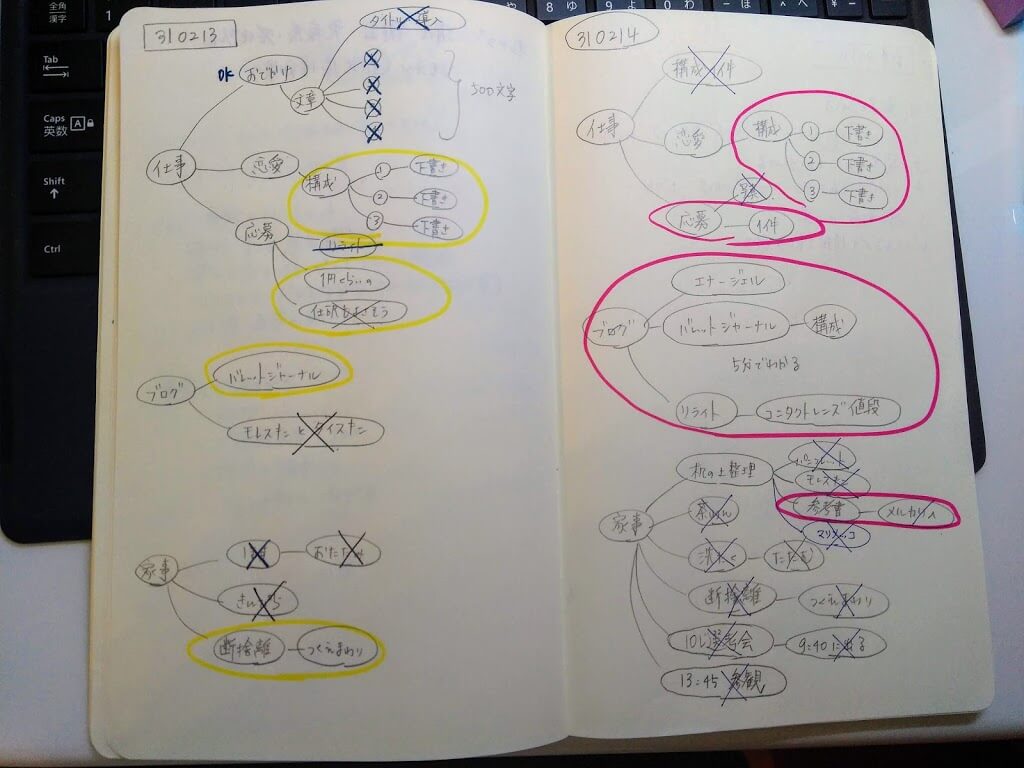 全角
漢字
Tab
Caps
英数
A
Shift
Ctrl
や
8
ゆ
9
よ
0
わ
-
ほ
へ
310213
OK
おでかけ
文章
500文字
仕事
恋愛
構成
1
下書き
2
下書き
3
下書き
応募
リライト
ブログ
バレットジャーナル
モレスキンとダイスキン
家事
断捨離
つくえまわり
310214
構成 件
仕事
恋愛
構成
1
下書き
2
下書き
3
下書き
応募
1件
エナージェル
ブログ
バレットジャーナル
構成
5分でわかる
リライト
コンタクトレンズ値段
机の上整理
モレスキン
参考書
メルカリへ
家事
洗たく
たたむ
断捨離
つくえまわり
10:選考会
9:40に出る
13:45 参観